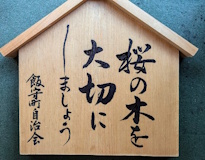 桜の木を
大切に
しましょう
飯守町自治会